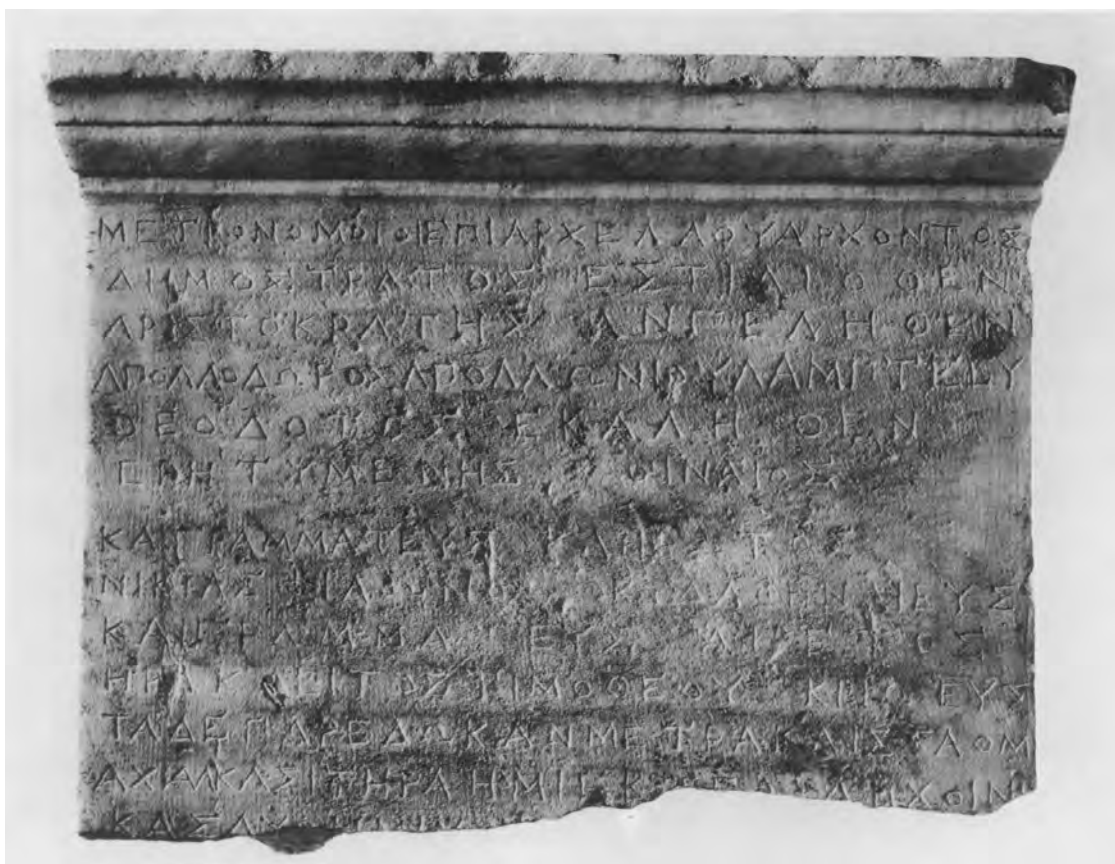 ΜΕΤΡΟΝΟΜΟΙΟΙΕΠΙΑΡΧΕΛΑΟΥΑΡΧΟΝΤΟΣ
ΔΗΜΟΣΤΡΑΤΟΣ ΕΣΤΙΑΙΟΘΕΝ
ΑΡΙΣΤΟΚΡΑΤΗΣ ΑΝΓΕΛΗΘΕΝ
ΑΠΟΛΛΟΔΩΡΟΣΑΠΟΛΛΩΝΙΟΥ
ΘΕΟΔΟΤΟΣ ΕΚΑΛΗΘΕΝ
ΕΠΗΤΥΜΕΝΗΣ ΟΙΝΑΙΟΣ
ΚΑΙΓΡΑΜΜΑΤΕΥΣ ΚΛΗΡΩΤΟΣ
ΝΙΚΙΑΣ ΦΙΛΩΝΟΣ ΚΥΔΑΘΗΝΑΙΕΥΣ
ΚΑΙΓΡΑΜΜΑΤΕΥΣ ΑΙΡΕΤΟΣ
ΗΡΑΚΛΕΙΤΟΣ ΤΙΜΟΘΕΟΥ ΚΡΙΩΕΥΣ
ΤΑΔΕΠΑΡΕΔΩΚΑΝΜΕΤΡΑΚΑΙΣΤΑΘΜ
ΑΧΑΛΚΑΣΙΤΗΡΑΗΜΙΕΚΤΕΑ ΧΟΙΝ
ΚΑΣΔΥ